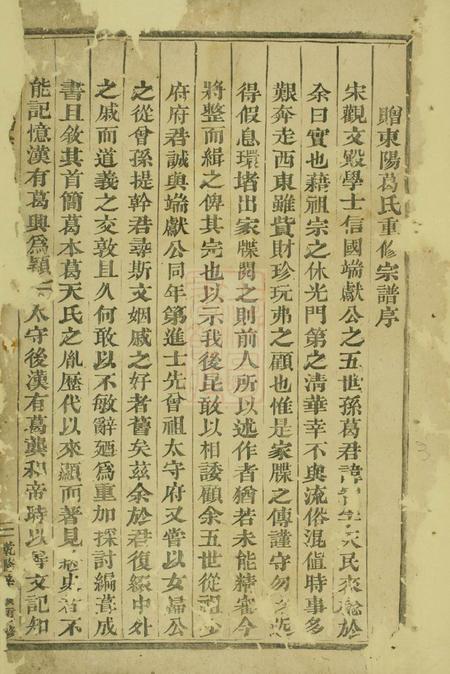 贈東陽葛氏重修宗譜序
宋觀文殿學士信國端獻公之五世孫葛君諱天民來謁於
余曰實也藉祖宗之休光門第之清華幸不與流俗混值時事多
艱奔走西東雖貲財珍玩弗之顧也惟是家牒之傳謹守勿
得假息環堵出家牒閱之則前人所以述作者猶若未能精審今
將整而緝之俾其完也以示我後昆敢以相諉顧余五世從祖
府府君誠與端獻公同年第進士先曾祖太守府又嘗以女歸公
之從曾孫提幹君尋斯文姻戚之好者舊矣茲余於君復緦中外
之戚而道義之交敦且久何敢以不敏辭廼為重加採討編葺成
書且敘其首簡葛本葛天氏之胤歷代以來顯而著見史不
能記憶漢有葛興為潁太守後漢有葛龔和帝時以善文記知